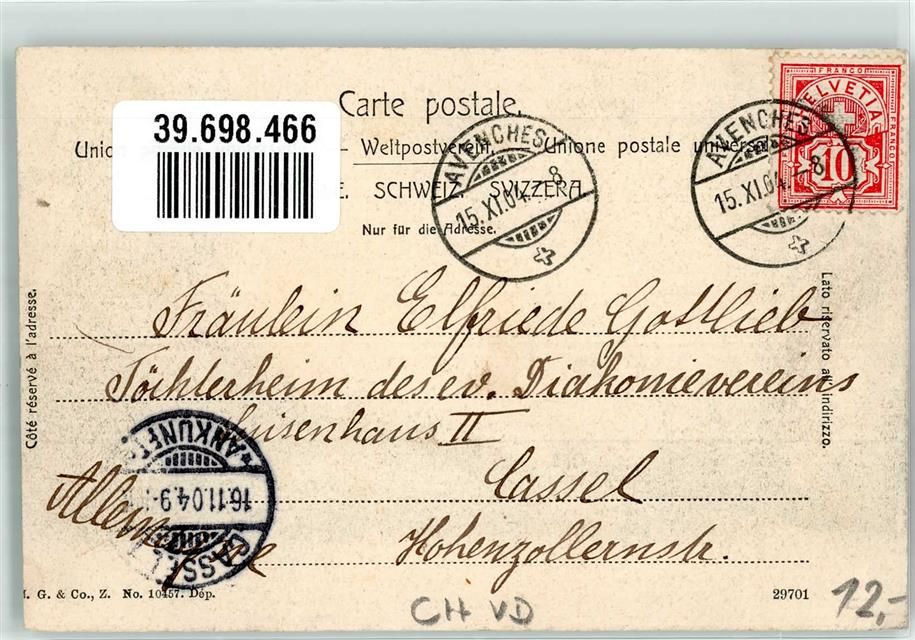 Carte postale.
39.698.466
Weltpostverein. Unione postale universale
SCHWEIZ. SVIZZERA.
Nur für die Adresse.
FRANCO
HELVETIA
10
AVENCHES
15.XI.04.-8
AVENCHES
15.XI.04.-8
Côté réservé à l'adresse.
Lato riservato all'indirizzo.
Fräulein Elfriede Gottlieb
Töchterheim des ev. Diakonievereins
Luisenhaus II
Cassel
Allemagne
Hohenzollernstr.
ANKUNFT
16.11.04.9-
CASSEL
G. & Co., Z. No. 10457. Dép.
29701
CH VD
12,-